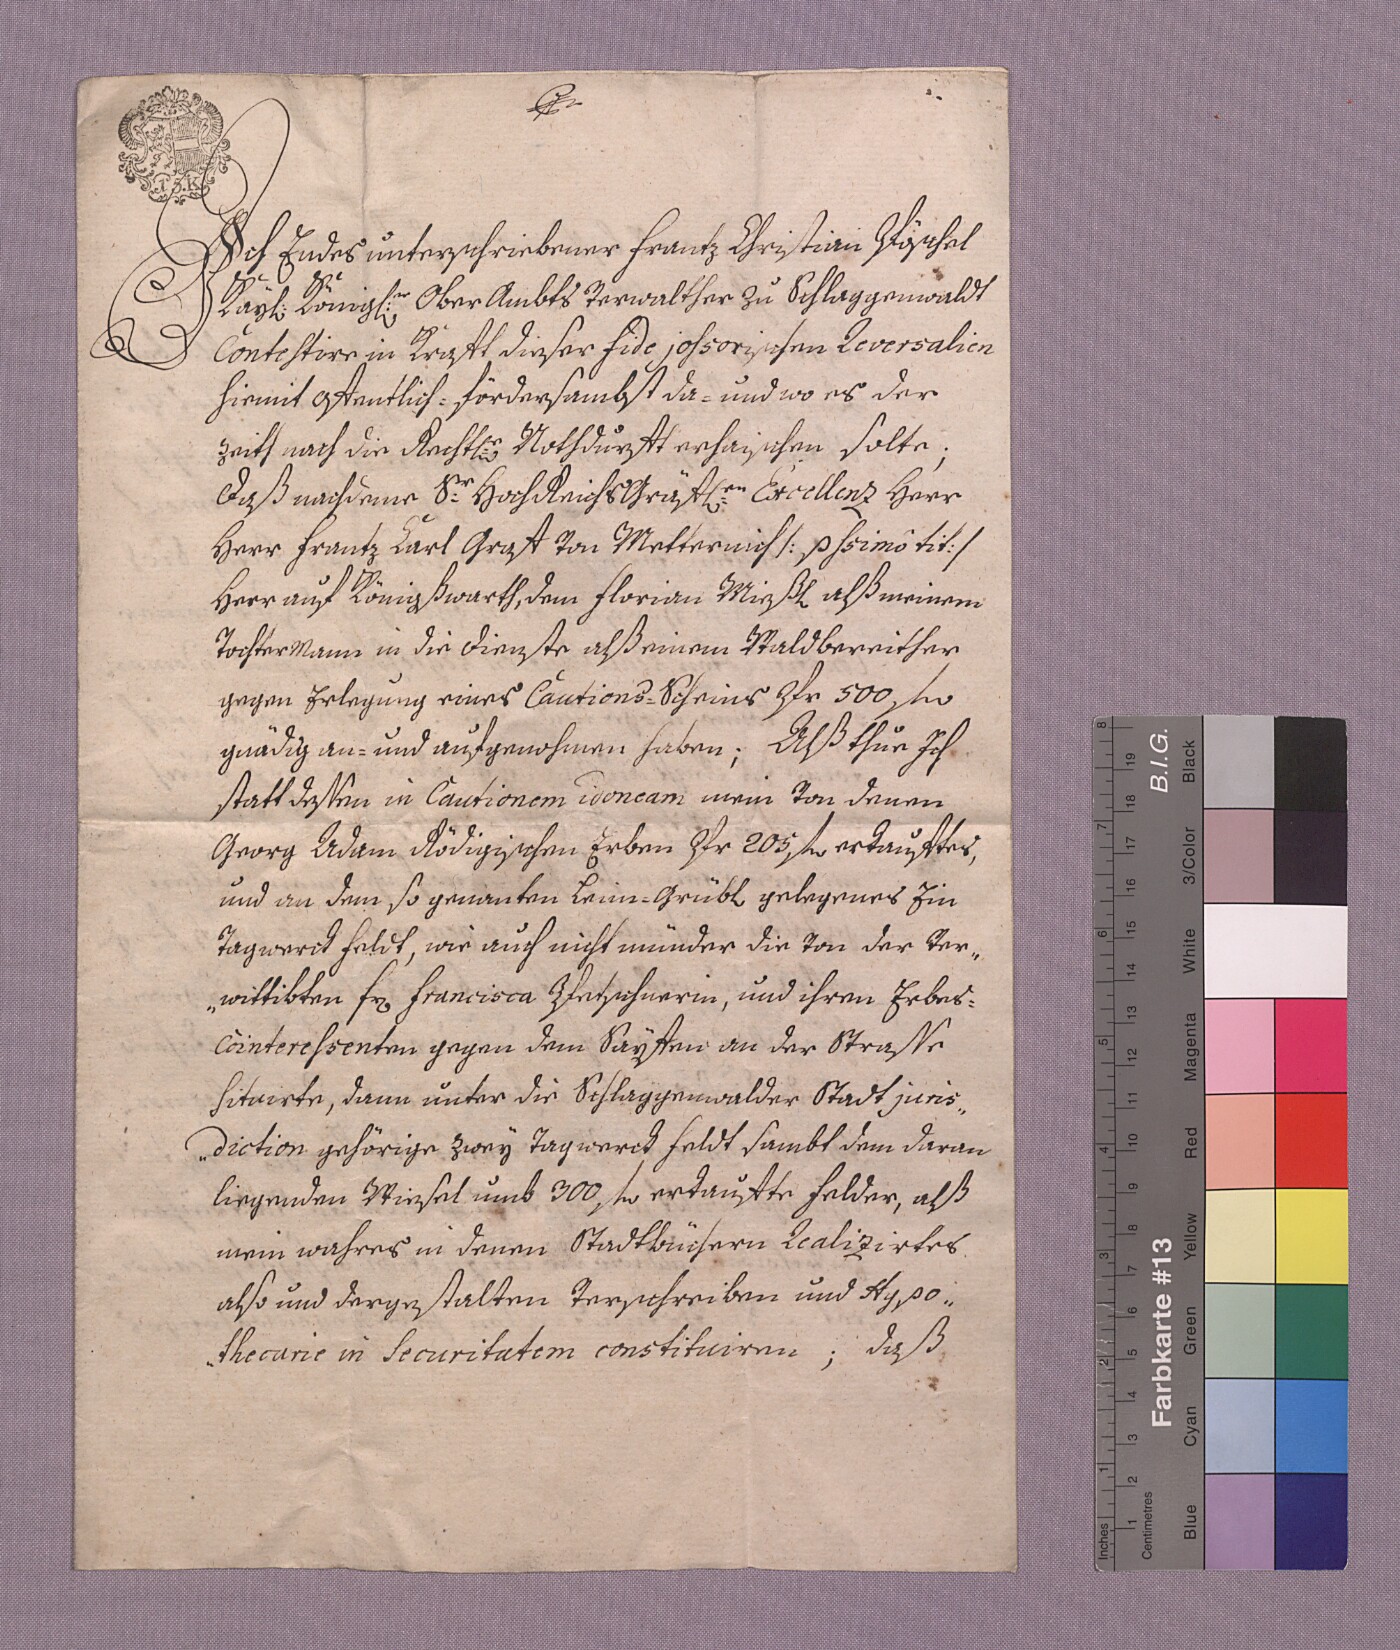 Ich Endes unterschriebener Frantz Christian Pöschel
Kayl: Königl:r OberAmbts Verwalther zu Schlaggenwaldt
Contestire in Krafft dieser fide jossorischen Reversalien
hiemit offentlich- fördersambst da- und wo es der
zeith nach die Rechtl: Nothdurfft erhaischen solte;
Daß nachdeme Sr HochReichsGräffl:en Excellenz Herr
Herr Frantz Carl Graff Von Metternich /: pssimô tit: /
Herr auf Königßwarth, dem Florian Mießl alß meinem
TochterMann in die Dienste alß einem Waldbereither
gegen Erlegung eines Cautions-Scheins Pfr 500 f
gnädig an- und aufgenohmen haben; Alß thue Ich
statt dessen in Cautionem idoneam mein Von denen
Georg Adam Rödigischen Erben Pfr 205 f erkaufftes,
und an dem so genanten Leim-Grübl gelegenes Ein
Tagwerck Feldt, wie auch nicht münder die Von der Ver„
„wittibten Fr Francisca Pfetschnerin, und ihren Erbes-
Cointeressenten gegen dem Säyffen an der Strasse
situirte, dann unter die Schlaggenwalder Stadt juris„
„diction gehörige zwey Tagwerck Feldt sambt dem daran
liegenden Wiesel umb 300 f erkauffte Felder, alß
mein wahres in denen Stadtbüchern Realizirtes
also und dergestalten Verschreiben und Hypo„
„thecarie in Securitatem constituiren; daß
inches
Centimetres
1 2 3 4 5 6 7 8
1 2 3 4 5 6 7 8 9 10 11 12 13 14 15 16 17 18 19
Farbkarte #13
B.I.G.
Blue
Cyan
Green
Yellow
Red
Magenta
White
3/Color
Black